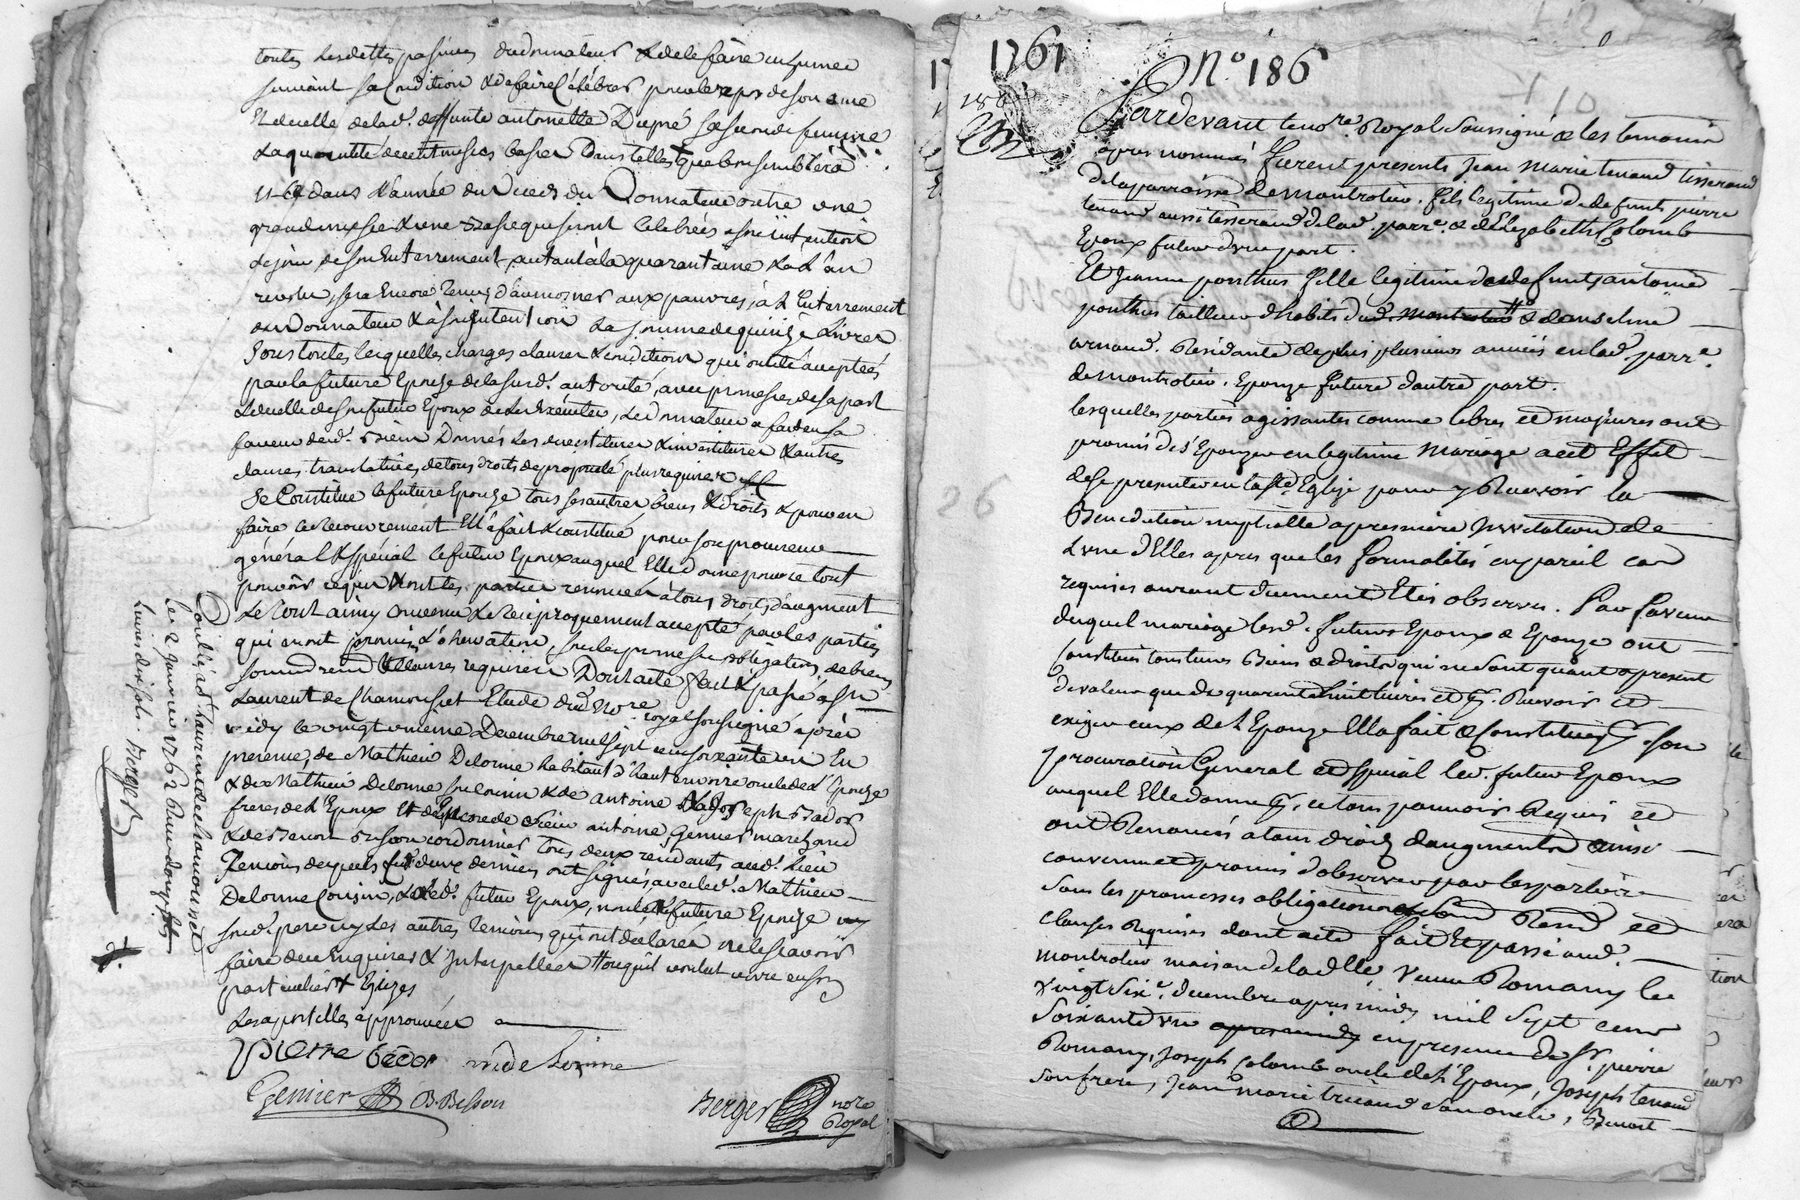 toutes les dettes passives du donnateur & de le faire inhumer
suivant sa condition & de faire Célébrer pour le repos de son ame
Et de celle de lad. deffunte antoinette Dupré sa femme
La quantité de cent messes basses Dans telles que bon semblera
dans l'année du deces du Donnateur outre une
grande messe & une qui seront Celebrées à son intention
le jour de son Enterrement, autant à la quarantaine & à L'an
revolu, sera Encore tenu d'aumosner aux pauvres, à L'Enterrement
du Donnateur & à son intention La somme de quinze Livres
Sous toutes lesquelles charges clauses & conditions qui ont été acceptées
par la future Epouse de lasusd. autorité, avec promesse de sa part
& de celle de son futur Epoux de les Exécuter, Le donnateur a fait en sa
faveur de lad. Donnés Les devestitures & investitures & autres
clauses translatives de tous droits de propriété plus requises
Se Constitue la future Epouse tous ses autres biens & droits & pour en
faire le Recouvrement Elle a fait & constitué pour son procureur
général & spécial le futur Epoux auquel Elle donne pour ce tout
pouvoir requis & ont les parties renoncé à tous droits d'augment
Le tout ainsy Convenu & Reciproquement accepté par les parties
qui en ont promis L'observation, sous les promesses obligations de biens
soumission & clauses requises Dont acte fait & passé à St
Laurent de Chamousset Etude dud. Nore royal soussigné après
midy le vingt unieme Decembre mil sept cens soixante un En
presence de Mathieu Delorme habitant d'haute rivoire oncle de L'Epouse
& de Mathieu Delorme son cousin & de antoine & Joseph Bador
freres de L'Epoux Et de sieur antoine Genier marchand
& de Benoit Besson cordonnier tous deux residants aud. Lieu
Temoins desquels les deux derniers ont signés avec led. Mathieu
Delorme Cousin, & led. futur Epoux, non la future Epouse
sond. pere ny Les autres Temoins qui ont declarés ne le scavoir
faire de ce Enquires & Interpellés
particulier & Epizes
Les apostilles approuvées
pierre bador m de Lorme
Genier B Besson
Berger nore Royal
Controllé à St Laurent de chamousset
le 2 janvier 1762 Reçu
Livres dix sols. Berger
1761
186
N.° 186
Pardevant le no.re Royal Soussigné & les temoins
apres nommés furent presents Jean Marie tenaud tisserand
de la parroisse de Montrotier. fils legitime de defunt pierre
tenaud aussi tisserand de lad. parr.e & d'Elizabeth Colomb
Epoux futur d'une part.
Et Jeanne ponthus fille legitime de defunt antoine
ponthus tailleur d'habits dud. Montrotier & d'anselme
arnaud. Residante depuis plusieurs années en lad. parr.e
de Montrotier. Epouze future d'autre part.
lesquelles parties agissantes comme libres et majeures ont
promis de s'Epouzer en legitime Mariage a cet Effet
de se presenter en la ste. Eglize pour y Recevoir la
Benediction nuptialle a premiere Invitation de
L'une d'Elles apres que les formalités en pareil cas
requises auront duement Etés observées. En faveur
duquel mariage lesd. futurs Epoux & Epouze ont
constitués tous leurs Biens & droits qui ne sont quant a present
de valeur que de quarante huit livres et p. Recevoir et
exiger ceux de l'Epouze Ella fait & Constitué p. son
procuration General et spécial led. futur Epoux
auquel Elle donne p. ce tous pouvoirs Requis et
ont Renoncés a tous droits d'augment ainsi
convenu et promis d'observer par les parties
Sous les promesses obligations
clauses Requises dont acte fait Et passé aud.
Montrotier maison de la d.lle Veuve Romany le
vingt Six.e decembre apres midy mil Sept cens
Soixante un apres midy en presence de Sr. pierre
Romany, Joseph Colomb oncle de l'Epoux, Joseph tenaud
son frere, Jean marie tricaud son oncle, Benoit
26